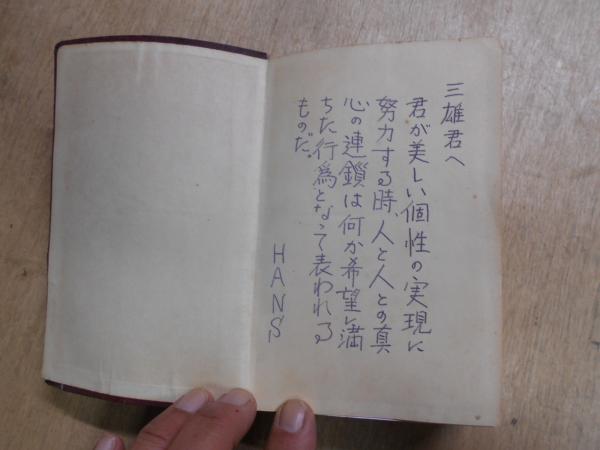 三雄君へ
君が美しい個性の実現に
努力する時、人と人との真
心の連鎖は何か希望に満
ちた行為となって表われる
ものだ。
HANS